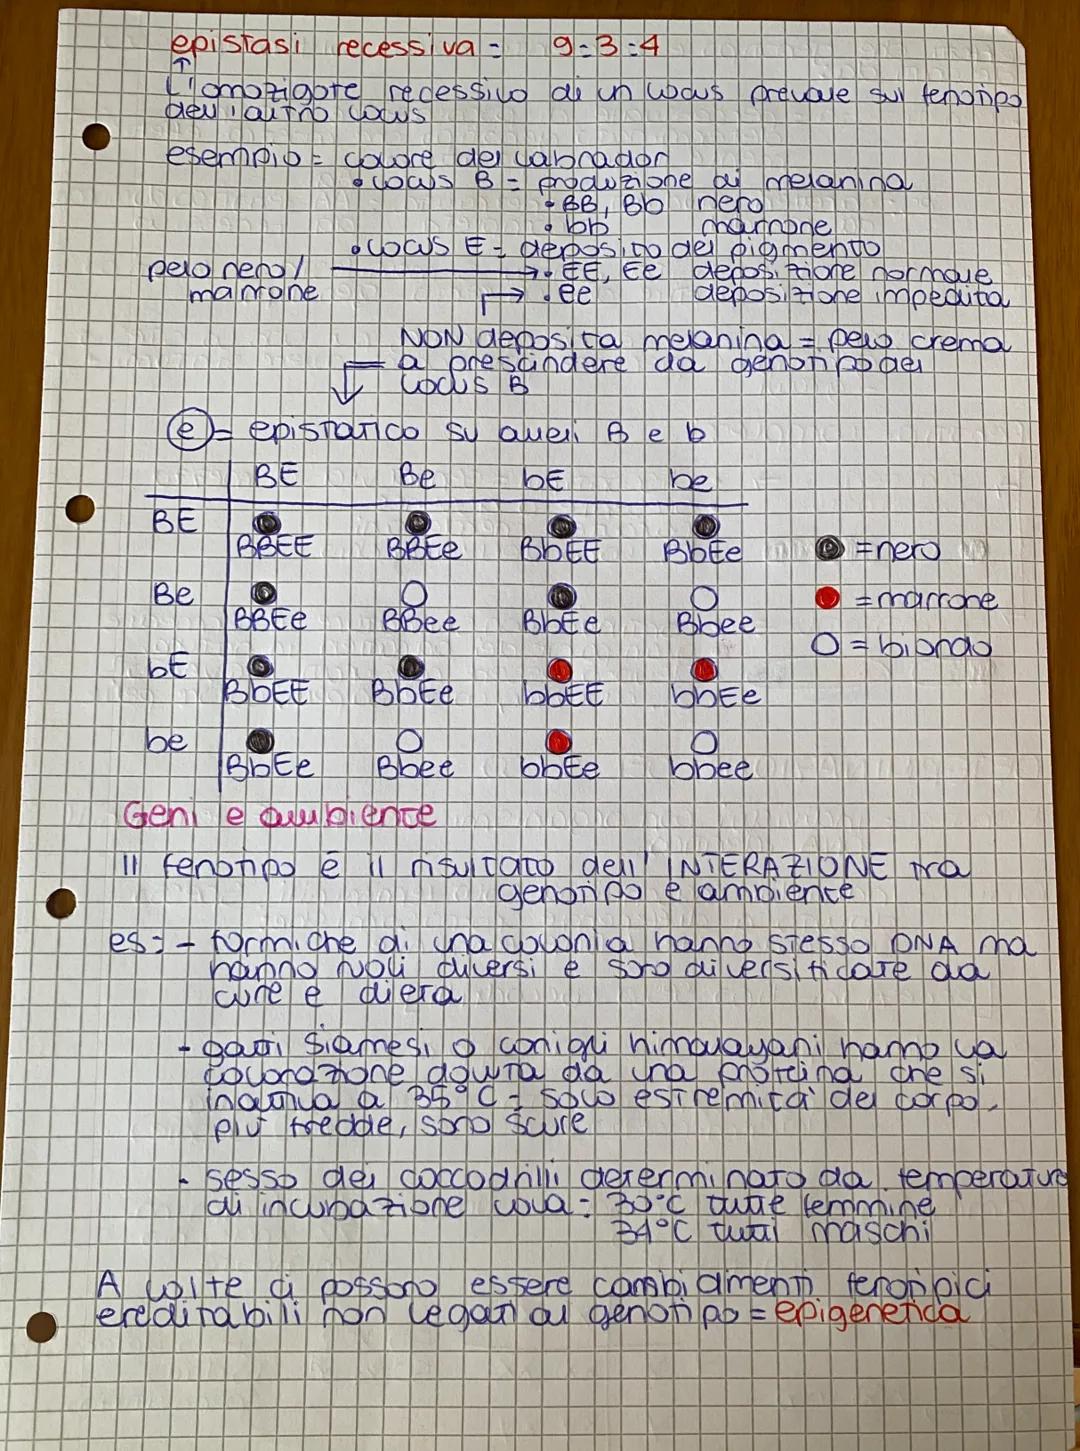 epistasi recessiva = 9:3:4
L'omozigote recessivo di un locus prevale sul fenotipo
dell'altro locus
esempio = colore del labrador
• locus B = produzione di melanina
• BB, Bb nero
• bb marrone
• locus E = deposito del pigmento
pelo nero/ → • EE, Ee deposizione normale
marrone → • ee deposizione impedita
NON deposita melanina = pelo crema
a prescindere da genotipo del
locus B
e = epistatico su alleli B e b
BE Be bE be
BE
BBEE BBEe BbEE BbEe = nero
Be
BBEe BBee BbEe Bbee = marrone
= biondo
bE
BbEE BbEe bbEE bbEe
be
BbEe Bbee bbEe bbee
Geni e ambiente
Il fenotipo è il risultato dell'INTERAZIONE tra
genotipo e ambiente
es: - formiche di una colonia hanno stesso DNA ma
hanno ruoli diversi e sono diversificate da
cure e dieta
- gatti siamesi o conigli himalayani hanno la
colorazione dovuta da una proteina che si
inattiva a 35°C = solo estremità del corpo,
più fredde, sono scure
- sesso dei coccodrilli determinato da temperatura
di incubazione uova = 30°C tutte femmine
34°C tutti maschi
A volte ci possono essere cambiamenti fenotipici
ereditabili non legati al genotipo = epigenetica